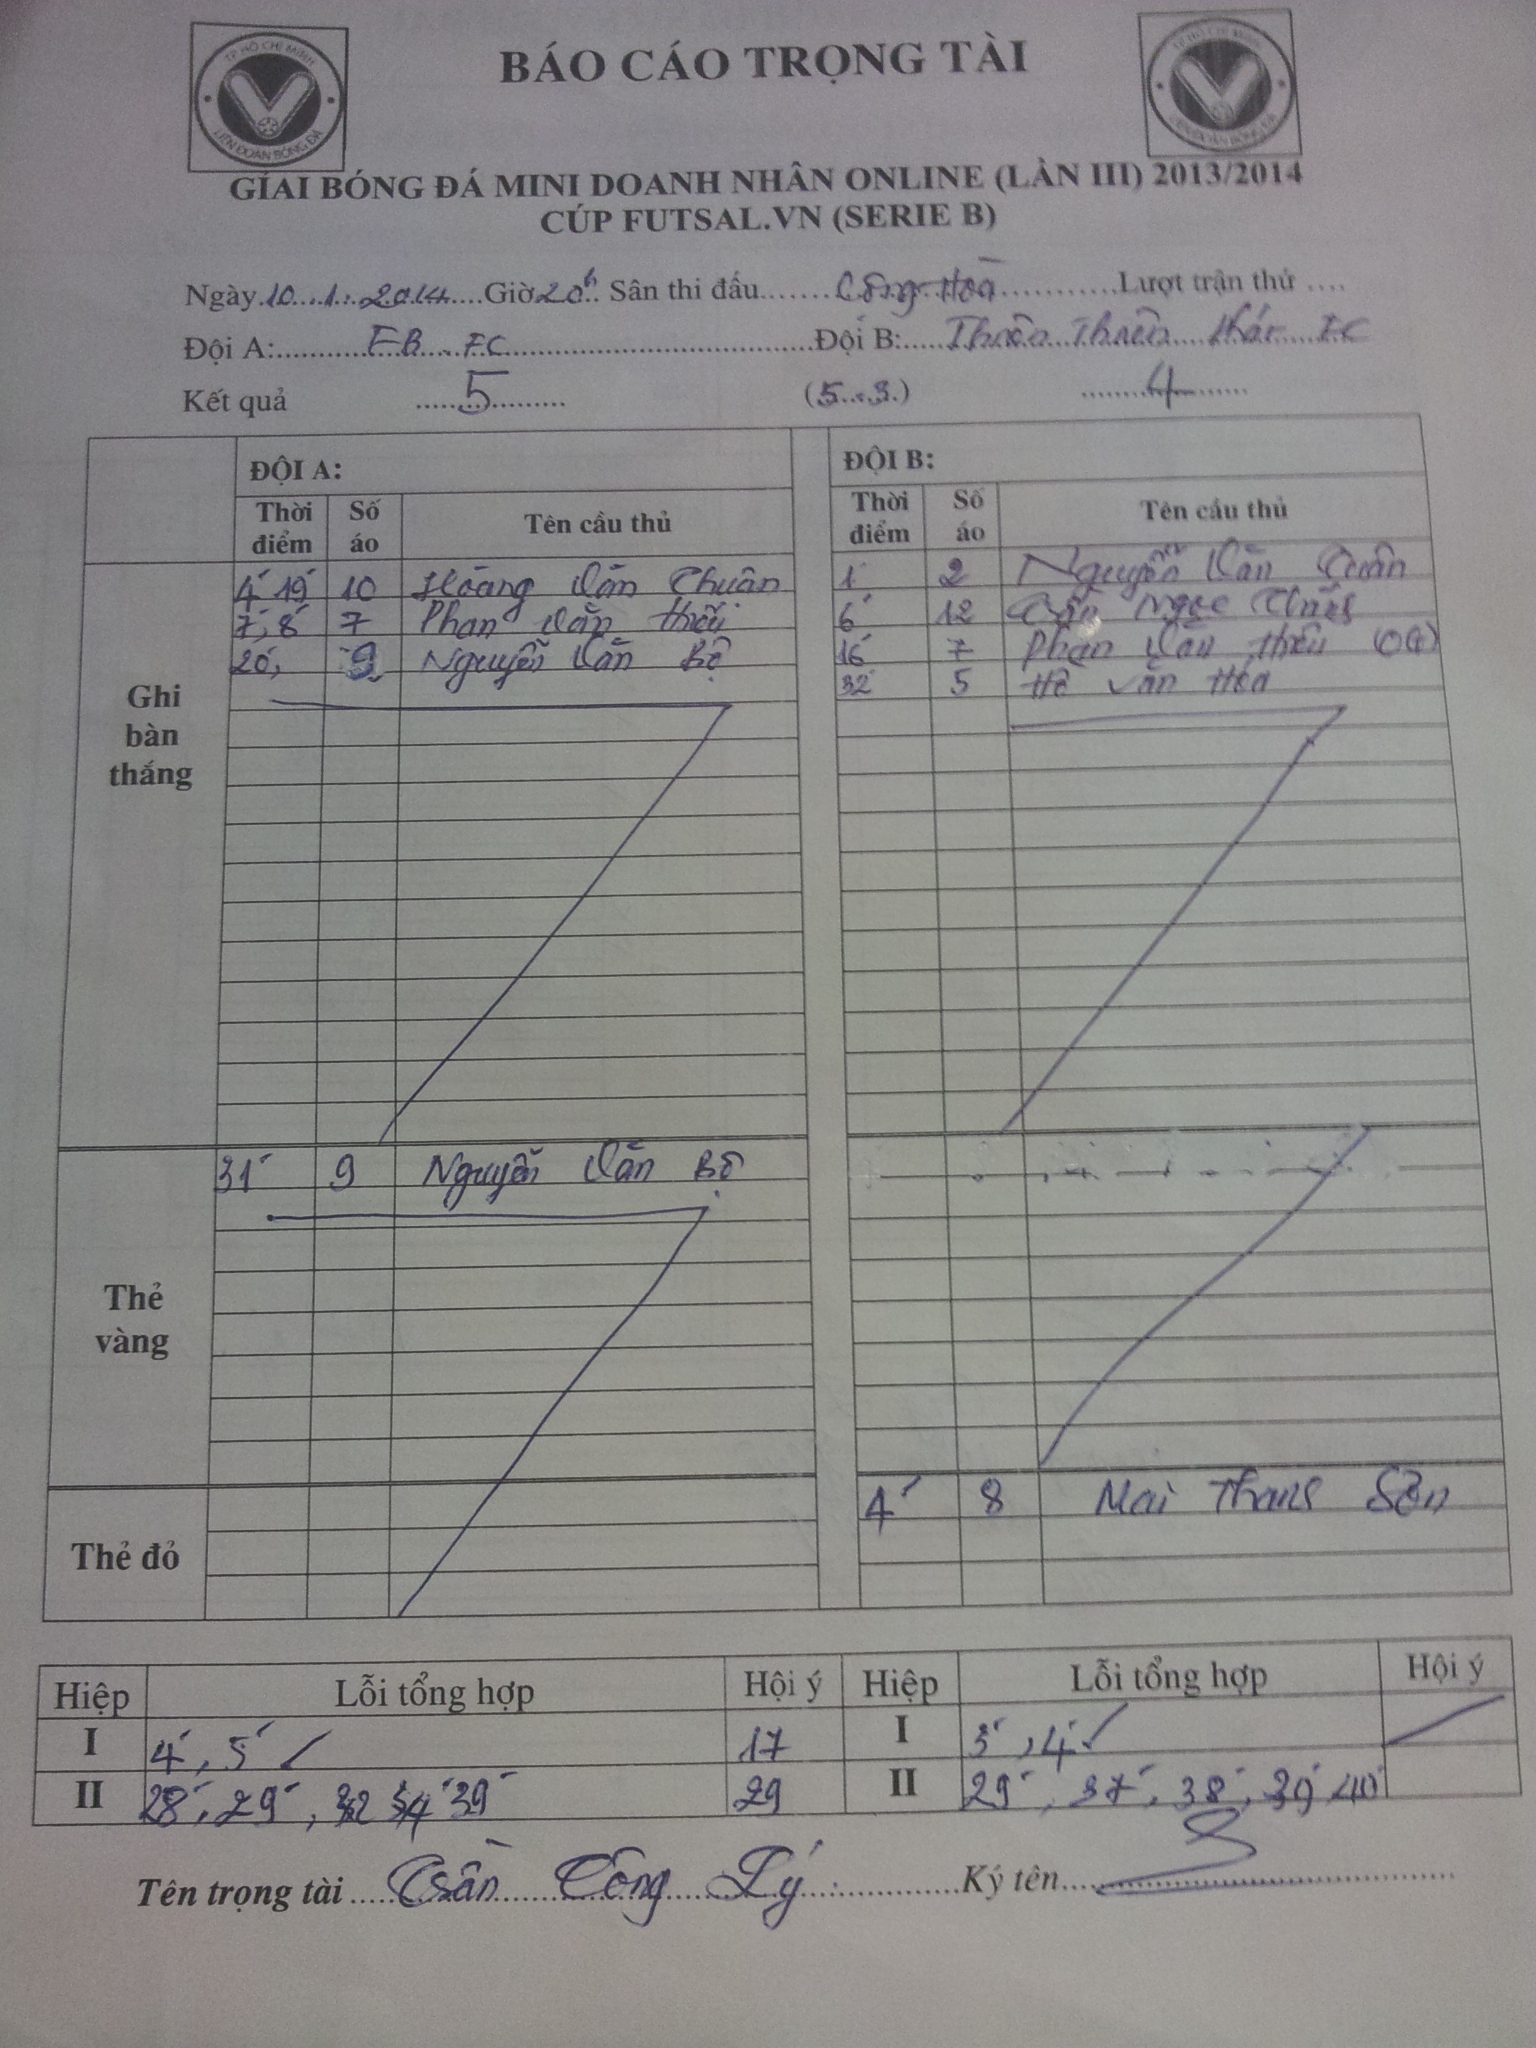 TP HỒ CHÍ MINH
LIÊN ĐOÀN BÓNG ĐÁ
BÁO CÁO TRỌNG TÀI
TP HỒ CHÍ MINH
LIÊN ĐOÀN BÓNG ĐÁ
GIẢI BÓNG ĐÁ MINI DOANH NHÂN ONLINE (LẦN III) 2013/2014
CÚP FUTSAL.VN (SERIE B)
Ngày 10.1.2014 Giờ 20h Sân thi đấu Cộng Hoà Lượt trận thứ ....
Đội A: FC Đội B: Thuận Thiên FC
Kết quả 5 (5.3.) 4
ĐỘI A: ĐỘI B:
Thời điểm Số áo Tên cầu thủ Thời điểm Số áo Tên cầu thủ
Ghi bàn thắng
4' 19' 10 Hoàng Văn Thuận 1' 2 Nguyễn Văn Quân
7', 8' 7 Phan Văn Thiều 6' 12 Ngọc
20', 9 Nguyễn Văn Bộ 16' 7 Phan Văn Thiều (OG)
32' 5 Hồ Văn Hòa
Thẻ vàng
31' 9 Nguyễn Văn Bộ
Thẻ đỏ
4' 8 Mai Sơn
Hiệp Lỗi tổng hợp Hội ý Hiệp Lỗi tổng hợp Hội ý
I 4', 5' 17 I 3', 4'
II 28', 29', 32 34' 39' 29 II 29', 37', 38', 39', 40'
Tên trọng tài Trần Công Lý Ký tên